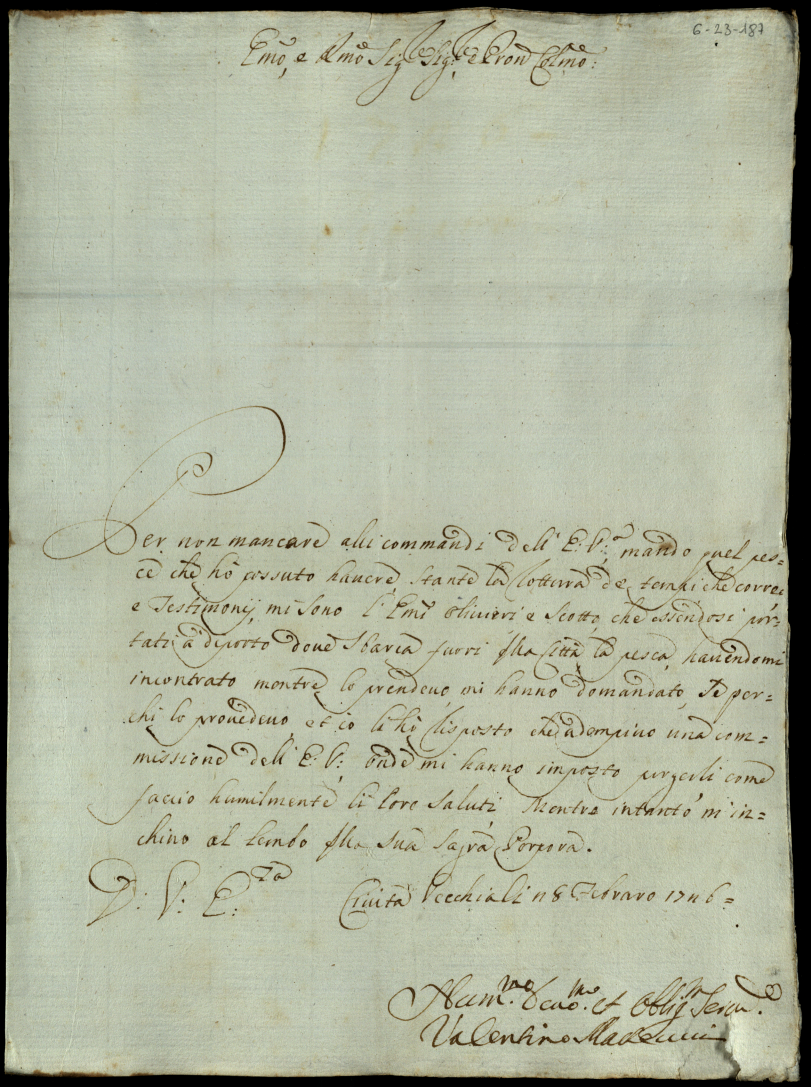 6-23-187
Emo, e Rmo Sig.re Sig.re e Pron Colmo:
Per non mancare alli commandi dell' E: V:ra mando quel pes=
ce che hò possuto havere, stante la rotturà de tempi che corre
e Testimonij, mi sono l'Emi Olivieri e Scotto, che essendosi por=
tati à diporto dove sbarca fuori della Città la pesca, havendomi
incontrato mentre lo prendevo, mi hanno domandato, Se per=
chi lo provedevo, et io li hò risposto che adempivo una com=
missione dell' E: V:, onde mi hanno imposto porgerli come
faccio humilmente li loro saluti, Mentre intanto m'in=
chino al lembo della Sua Sagra Porpora.
D: V: E:za Civita Vecchia li 8 Febraro 1746=
Hum:mo Devo:mo et Oblig:mo Serv:
Valentino